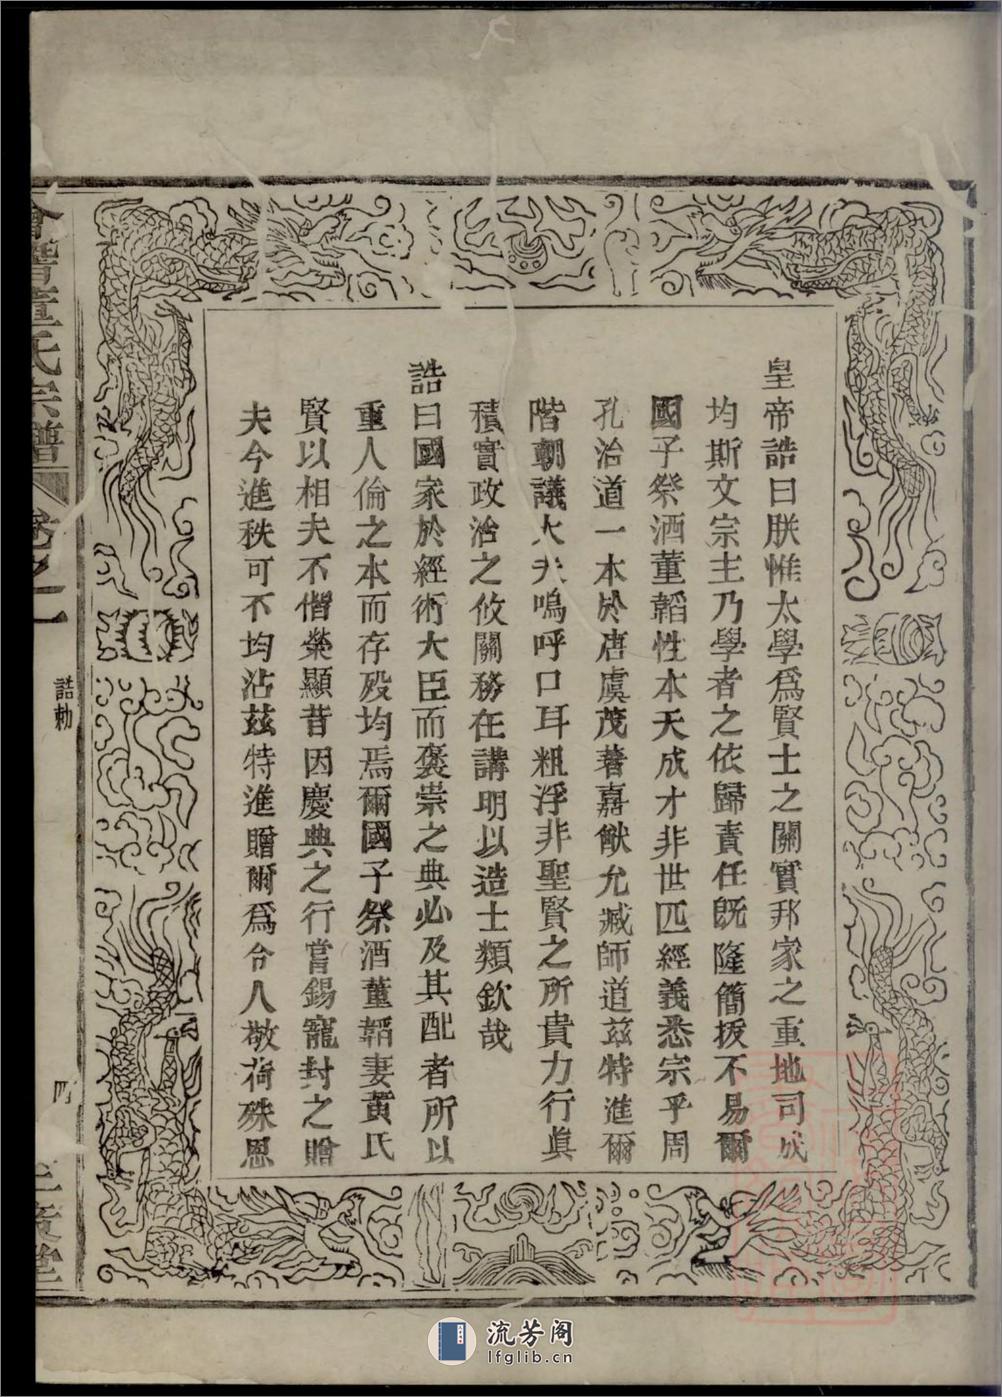 皇帝誥曰朕惟太學爲賢士之關實邦家之重地司成
均斯文宗主乃學者之依歸責任既隆簡拔不易爾
國子祭酒董韜性本天成才非世匹經義悉宗乎周
孔治道一本於唐虞茂著嘉猷允臧師道茲特進爾
階朝議大夫嗚呼口耳粗浮非聖賢之所貴力行眞
積實政治之攸關務在講明以造士類欽哉
誥曰國家於經術大臣而褒崇之典必及其配者所以
重人倫之本而存殁均焉爾國子祭酒董韜妻黃氏
賢以相夫不偕榮顯昔因慶典之行嘗錫寵封之贈
夫今進秩可不均沾茲特進贈爾爲令人敬荷殊恩
會稽董氏宗譜
卷之一
誥勅
四
流芳阁
lfglib.cn